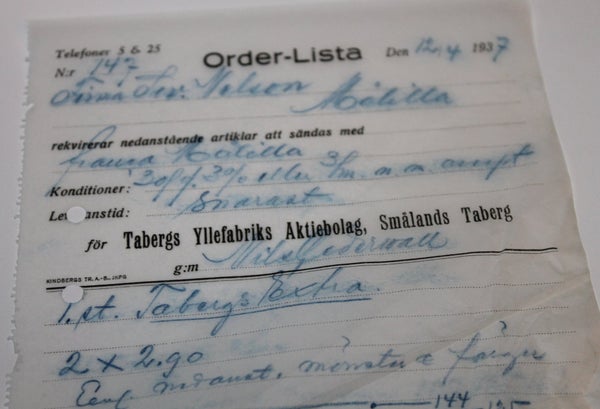 Telefoner 5 & 25
Order-Lista
Den 12/4 1937
N:r 147
Firma Nelson
Målilla
rekvirerar nedanstående artiklar att sändas med
franco Målilla
Konditioner: 3% eller 3/m. n. m. accept
Lev anstid: Snarast
för Tabergs Yllefabriks Aktiebolag, Smålands Taberg
g:m Nils Cederwall
KINDBERGS TR. A.-B., JKPG
1. st. Tabergs Extra.
2 x 2.90
Enl. nedanst. mönster & färger
144